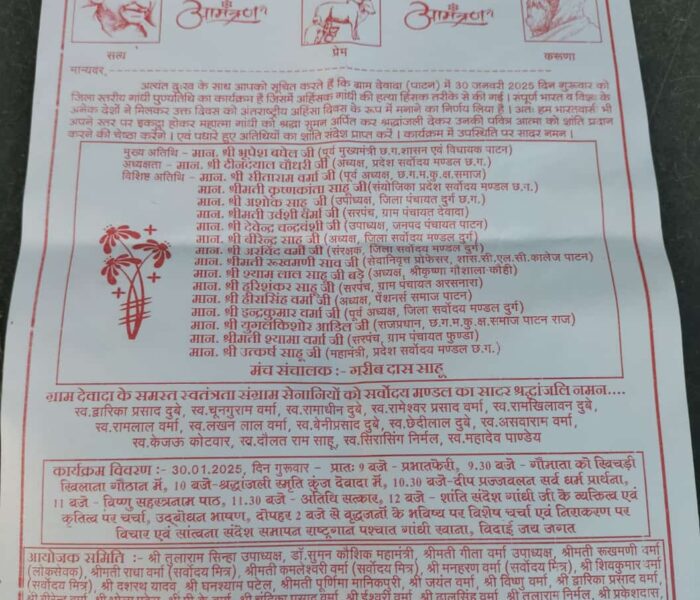 आमंत्रण
आमंत्रण
सत्य
प्रेम
करूणा
मान्यवर,
अत्यंत दुःख के साथ आपको सूचित करते हैं कि ग्राम देवादा (पाटन) में 30 जनवरी 2025 दिन गुरूवार को
जिला स्तरीय गांधी पुण्यतिथि का कार्यक्रम है जिसमें अहिंसक गांधी की हत्या हिंसक तरीके से की गई । संपूर्ण भारत व विश्व के
अनेक देशों ने मिलकर उक्त दिवस को अंतराष्ट्रीय अहिंसा दिवस के रूप में मनाने का निर्णय लिया है । अतः हम भारतवासी भी
अपने स्तर पर इकट्ठा होकर महात्मा गांधी को श्रद्धा सुमन अर्पित कर श्रद्धांजली देकर उनकी पवित्र आत्मा को शांति प्रदान
करने की चेष्ठा करेंगे । एवं पधारे हुए अतिथियों का शांति संदेश प्राप्त करें । कार्यक्रम में उपस्थिति पर सादर नमन ।
मुख्य अतिथि - मान. श्री भूपेश बघेल जी (पूर्व मुख्यमंत्री छ.ग.शासन एवं विधायक पाटन)
अध्यक्षता - मान. श्री दीनदयाल चौधरी जी (अध्यक्ष, प्रदेश सर्वोदय मण्डल छ.ग.)
विशिष्ट अतिथि - मान. श्री सीताराम वर्मा जी (पूर्व अध्यक्ष, छ.ग.म.कु.क्ष.समाज)
मान. श्रीमती कृष्णकांता साहू जी(संयोजिका प्रदेश सर्वोदय मण्डल छ.ग.)
मान. श्री अशोक साहू जी (उपाध्यक्ष, जिला पंचायत दुर्ग छ.ग.)
मान. श्रीमती उर्वशी वर्मा जी (सरपंच, ग्राम पंचायत देवादा)
मान. श्री देवेन्द्र चन्द्रवंशी जी (उपाध्यक्ष, जनपद पंचायत पाटन)
मान. श्री वीरेन्द्र साहू जी (अध्यक्ष, जिला सर्वोदय मण्डल दुर्ग)
मान. श्री अरविंद वर्मा जी (संरक्षक, जिला सर्वोदय मण्डल दुर्ग)
मान. श्रीमती रूखमणी साव जी (सेवानिवृत्त प्रोफेसर, शास.सी.एल.सी.कालेज पाटन)
मान. श्री श्याम लाल साहू बड़े (अध्यक्ष, श्रीकृष्णा गौशाला कौही)
मान. श्री हरिशंकर साहू जी (सरपंच, ग्राम पंचायत अरसनारा)
मान. श्री हीरासिंह वर्मा जी (अध्यक्ष, पेंशनर्स समाज पाटन)
मान. श्री इन्द्रकुमार वर्मा जी (पूर्व अध्यक्ष, जिला सर्वोदय मण्डल दुर्ग)
मान. श्री युगलकिशोर आडिल जी (राजप्रधान, छ.ग.म.कु.क्ष.समाज पाटन राज)
मान. श्रीमती श्यामा वर्मा जी (सरपंच, ग्राम पंचायत फुण्डा)
मान. श्री उत्कर्ष साहू जी (महामंत्री, प्रदेश सर्वोदय मण्डल छ.ग.)
मंच संचालक :- गरीब दास साहू
ग्राम देवादा के समस्त स्वतंत्रता संग्राम सेनानियों को सर्वोदय मण्डल का सादर श्रद्धांजलि नमन....
स्व.द्वारिका प्रसाद दुबे, स्व.चूनगुराम वर्मा, स्व.रामाधीन दुबे, स्व.रामेश्वर प्रसाद वर्मा, स्व.रामखिलावन दुबे,
स्व.रामलाल वर्मा, स्व.लखन लाल वर्मा, स्व.बेनीप्रसाद दुबे, स्व.छेदीलाल दुबे, स्व.असवाराम वर्मा,
स्व.केजऊ कोटवार, स्व.दौलत राम साहू, स्व.सिरासिंग निर्मल, स्व.महादेव पाण्डेय
कार्यक्रम विवरण :- 30.01.2025, दिन गुरूवार - प्रातः 9 बजे - प्रभातफेरी, 9.30 बजे - गौमाता को खिचड़ी
खिलाना गौठान में, 10 बजे-श्रद्धांजली स्मृति कुंज देवादा में, 10.30 बजे-दीप प्रज्जवलन सर्व धर्म प्रार्थना,
11 बजे - विष्णु सहस्त्रनाम पाठ, 11.30 बजे - अतिथि सत्कार, 12 बजे - शांति संदेश गांधी जी के व्यक्तित्व एवं
कृतित्व पर चर्चा, उद्बोधन भाषण, दोपहर 2 बजे से वृद्धजनों के भविष्य पर विशेष चर्चा एवं निराकरण पर
विचार एवं सांत्वना संदेश समापन राष्ट्रगान पश्चात गांधी खाना, विदाई जय जगत
आयोजक समिति :- श्री तुलाराम सिन्हा उपाध्यक्ष, डॉ.सुमन कौशिक महामंत्री, श्रीमती गीता वर्मा उपाध्यक्ष, श्रीमती रूखमणी वर्मा
(लोकसेवक), श्रीमती राधा वर्मा (सर्वोदय मित्र), श्रीमती कमलेश्वरी वर्मा (सर्वोदय मित्र), श्री मनहरण वर्मा (सर्वोदय मित्र), श्री शिवकुमार वर्मा
(सर्वोदय मित्र), श्री दशरथ यादव, श्री घनश्याम पटेल, श्रीमती पूर्णिमा मानिकपुरी, श्री जयंत वर्मा, श्री विष्णु वर्मा, श्री द्वारिका प्रसाद वर्मा,
श्री ईश्वरी वर्मा, श्री ठालसिंह वर्मा, श्री तुलाराम निर्मल, श्री प्रकेशदास,